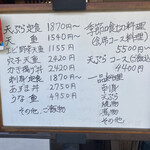 天ぷら定食 1870円〜
天重 1540円〜
えび野菜天重 1155円
穴子天重 2420円
かき揚げ丼 2420円
刺身定食 1870円〜
あげ巻 2750円
うな重 4950円
その他、ご飯物
季節の食材の料理
(会席コース料理)
5500円〜
天ぷらコース(込)
4400円
一品料理
刺身
天ぷら
焼物
煮物
その他